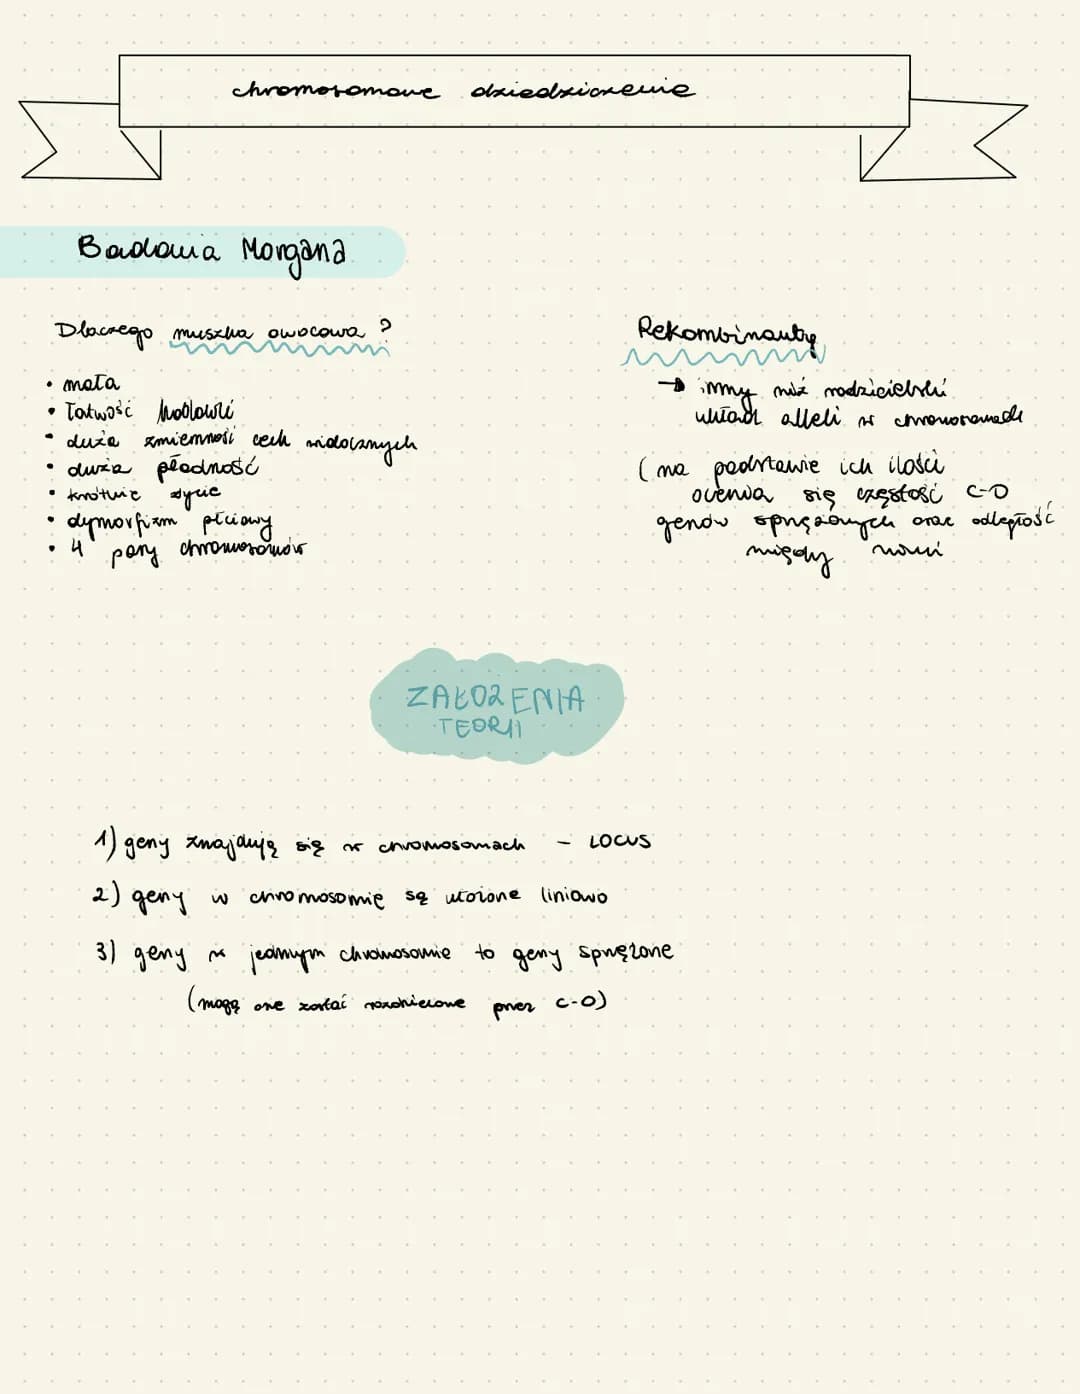 chromosomowe dziedziczenie
Badania Morgana
Dlaczego muszka owocowa?
• mała
• łatwość hodowli
• duża zmienność cech widocznych
• duża płodność
• krótkie życie
• dymorfizm płciowy
• 4 pary chromosomów
Rekombinanty
→ inny niż rodzicielski
układ alleli w chromosomach
(na podstawie ich ilości
ocenia się częstość C-O
genów sprzężonych oraz odległość
między nimi
ZAŁOŻENIA
TEORII
1) geny znajdują się w chromosomach - LOCUS
2) geny w chromosomie są ułożone liniowo
3) geny w jednym chromosomie to geny sprzężone
(mogą one zostać rozdzielone przez C-O)